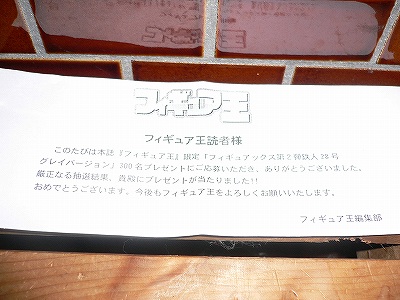 フィギュア王
フィギュア王読者様
このたびは本誌『フィギュア王』限定「フィギュアックス第2弾鉄人28号
グレイバージョン」300名プレゼントにご応募いただき、ありがとうございました。
厳正なる抽選結果、貴殿にプレゼントが当たりました!!
おめでとうございます。今後もフィギュア王をよろしくお願いいたします。
フィギュア王編集部